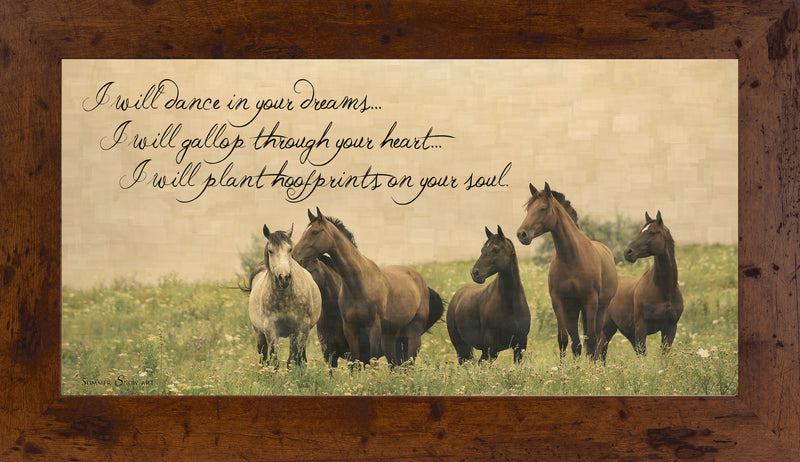 I will dance in your dreams...
I will gallop through your heart...
I will plant hoofprints on your soul.
Summer Snow art